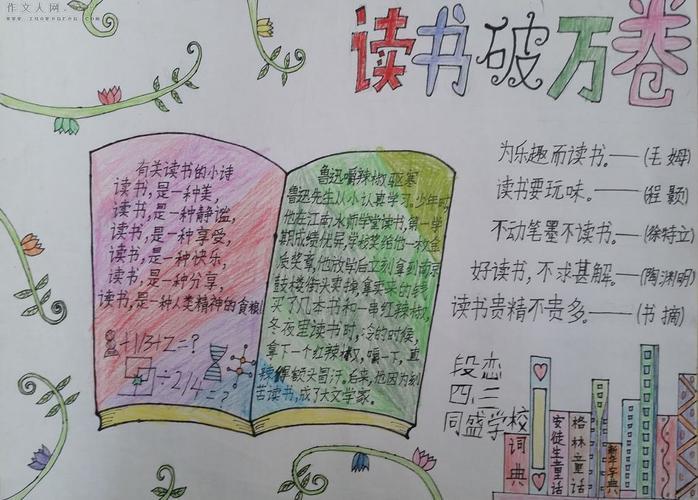 作文人网
www.zuowenren.com
读书破万卷
有关读书的小诗
读书,是一种美,
读书,是一种静谧,
读书,是一种享受,
读书,是一种快乐,
读书,是一种分享,
读书,是一种人类精神的食粮。
+1/3+2=?
÷2/4=?
鲁迅嚼辣椒驱寒
鲁迅先生从小认真学习。少年时,
他在江南水师学堂读书,第一学
期成绩优异,学校奖给他一枚金
质奖章,他放学后立刻拿到南京
鼓楼街头卖掉,拿卖来的钱
买了几本书和一串红辣椒,
冬夜里读书时,冷的时候,
拿下一个红辣椒,嚼一下,直
辣得额头冒汗。后来,他因为刻
苦读书,成了大文学家。
为乐趣而读书。——(毛姆)
读书要玩味。——(程颢)
不动笔墨不读书。——(徐特立)
好读书,不求甚解。——(陶渊明)
读书贵精不贵多。——(书摘)
段恋
四、三
同盛学校
词典
安徒生童话
格林童话
新华字典